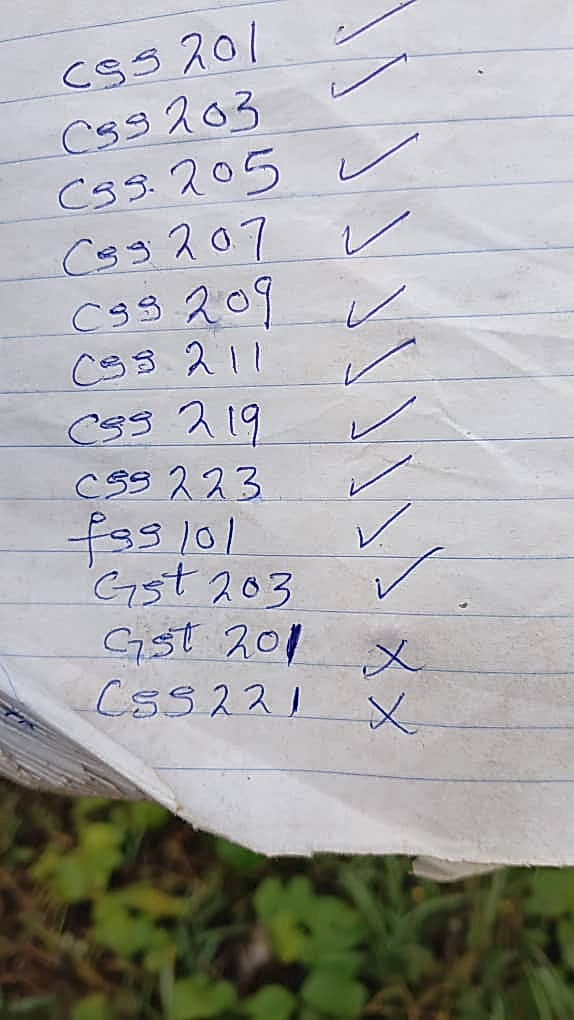 Css 201 ✓
Css 203 ✓
Css. 205 ✓
Css 207 ✓
Css 209 ✓
Css 211 ✓
Css 219 ✓
Css 223 ✓
fss 101 ✓
Gst 203 ✓
Gst 201 X
CSS 221 X